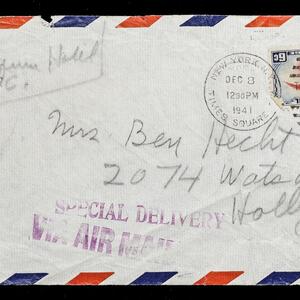 Hotel
NEW YORK, N.Y.
DEC 8
1230 PM
1941
TIMES SQUARE
6¢
Mrs Ben Hecht
2074 Wats
Holly
SPECIAL DELIVERY
VIA AIR MAIL